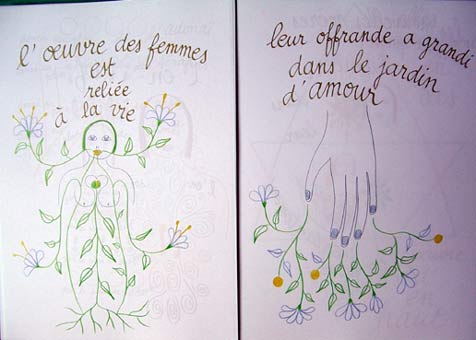 l'oeuvre des femmes
est
reliée
à la vie
leur offrande a grandi
dans le jardin
d'amour